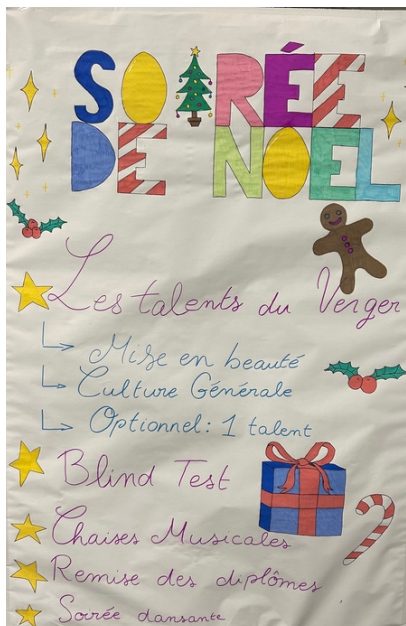 SOIRÉE
DE NOEL
Les talents du Verger
Mise en beauté
Culture Générale
Optionnel: 1 talent
Blind Test
Chaises Musicales
Remise des diplômes
Soirée dansante